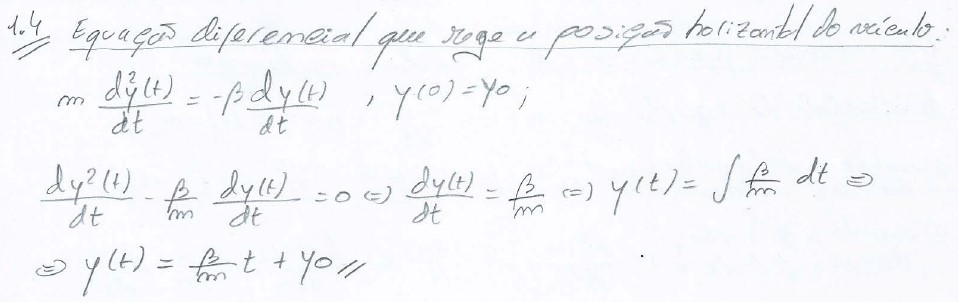 1.4 Equação diferencial que rege a posição horizontal do veículo:
m dy²(t)/dt = -β dy(t)/dt , y(0) = y0 ;
dy²(t)/dt - β/m dy(t)/dt = 0 (=) dy(t)/dt = β/m (=) y(t) = ∫ β/m dt =>
=> y(t) = β/m t + y0 //